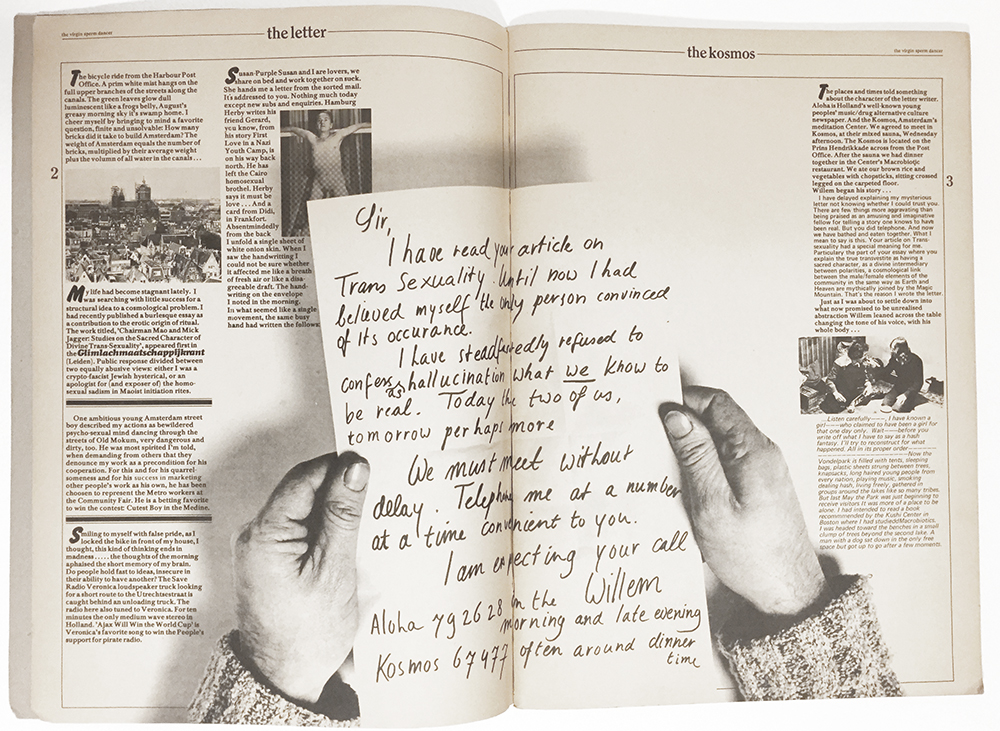 the virgin sperm dancer
the letter
2
The bicycle ride from the Harbour Post
Office. A prim white mist hangs on the
full upper branches of the streets along the
canals. The green leaves glow dull
luminescent like a frogs belly, August's
greasy morning sky it's swamp home. I
cheer myself by bringing to mind a favorite
question, finite and unsolvable: How many
bricks did it take to build Amsterdam? The
weight of Amsterdam equals the number of
bricks, multiplied by their average weight
plus the volumn of all water in the canals . . .
My life had become stagnant lately. I
was searching with little success for a
structural idea to a cosmological problem. I
had recently published a burlesque essay as
a contribution to the erotic origin of ritual.
The work titled, 'Chairman Mao and Mick
Jagger: Studies on the Sacred Character of
Divine Trans-Sexuality', appeared first in
the Glimlachmaatschappijkrant
(Leiden). Public response divided between
two equally abusive views: either I was a
crypto-fascist Jewish hysterical, or an
apologist for (and exposer of) the homo-
sexual sadism in Maoist initiation rites.
One ambitious young Amsterdam street
boy described my actions as bewildered
psycho-sexual mind dancing through the
streets of Old Mokum, very dangerous and
dirty, too. He was most spirited I'm told,
when demanding from others that they
denounce my work as a precondition for his
cooperation. For this and for his quarrel
someness and for his success in marketing
other people's work as his own, he has been
choosen to represent the Metro workers at
the Community Fair. He is a betting favorite
to win the contest: Cutest Boy in the Medine.
Smiling to myself with false pride, as I
locked the bike in front of my house, I
thought, this kind of thinking ends in
madness . . . . . the thoughts of the morning
aphaised the short memory of my brain.
Do people hold fast to ideas, insecure in
their ability to have another? The Save
Radio Veronica loudspeaker truck looking
for a short route to the Utrechtsestraat is
caught behind an unloading truck. The
radio here also tuned to Veronica. For ten
minutes the only medium wave stereo in
Holland. 'Ajax Will Win the World Cup' is
Veronica's favorite song to win the People's
support for pirate radio.
Susan-Purple Susan and I are lovers, we
share on bed and work together on suck.
She hands me a letter from the sorted mail.
It's addressed to you. Nothing much today
except new subs and enquiries. Hamburg
Herby writes his
friend Gerard,
you know, from
his story First
Love in a Nazi
Youth Camp, is
on his way back
north. He has
left the Cairo
homosexual
brothel. Herby
says it must be
love . . . And a
card from Didi,
in Frankfort.
Absentmindedly
from the back
I unfold a single sheet of
white onion skin. When I
saw the handwritting I
could not be sure whether
it affected me like a breath
of fresh air or like a disa-
greeable draft. The hand-
writing on the envelope
I noted in the morning.
In what seemed like a single
movement, the same busy
hand had written the follow
Sir,
I have read your article on
Trans Sexuality. Until now I had
believed myself the only person convinced
of its occurance.
I have steadfastedly refused to
confess as hallucination what we know to
be real. Today the two of us,
tomorrow perhaps more
We must meet without
delay. Telephone me at a number
at a time convenient to you.
I am expecting your call
Willem
Aloha 792628 in the morning and late evening
Kosmos 67477 often around dinner time
the kosmos
the virgin sperm dancer
3
The places and times told something
about the character of the letter writer.
Aloha is Holland's well-known young
peoples' music/drug alternative culture
newspaper. And the Kosmos, Amsterdam's
meditation Center. We agreed to meet in
Kosmos, at their mixed sauna, Wednesday
afternoon. The Kosmos is located on the
Prins Hendrikkade across from the Post
Office. After the sauna we had dinner
together in the Center's Macrobiotic
restaurant. We ate our brown rice and
vegetables with chopsticks, sitting crossed
legged on the carpeted floor.
Willem began his story . . .
I have delayed explaining my mysterious
letter not knowing whether I could trust you.
There are few things more aggravating than
being praised as an amusing and imaginative
fellow for telling a story one knows to have
been real. But you did telephone. And now
we have bathed and eaten together. What I
mean to say is this. Your article on Trans-
sexuality had a special meaning for me.
Particulary the part of your essay where you
explain the true transvestite as having a
sacred character, as a divine intermediary
between polarities, a cosmological link
between the male/female elements of the
community in the same way as Earth and
Heaven are mythically joined by the Magic
Mountain. That's the reason I wrote the letter.
Just as I was about to settle down into
what now promised to be unrealised
abstraction Willem leaned across the table
changing the tone of his voice, with his
whole body . . .
Listen carefully——, I have known a
girl——who claimed to have been a girl for
that one day only. Wait——before you
write off what I have to say as a hash
fantasy. I'll try to reconstruct for what
happened. All in its proper order————
————————————————Now the
Vondelpark is filled with tents, sleeping
bags, plastic sheets strung between trees,
knapsacks, long haired young people from
every nation, playing music, smoking
dealing hash, living freely, gathered in
groups around the lakes like so many tribes.
But last May the Park was just beginning to
receive visitors. It was more of a place to be
alone. I had intended to read a book
recommended by the Kushi Center in
Boston where I had studiedd Macrobiotics.
I was headed toward the benches in a small
clump of trees beyond the second lake. A
man with a dog sat down in the only free
space but got up to go after a few moments.